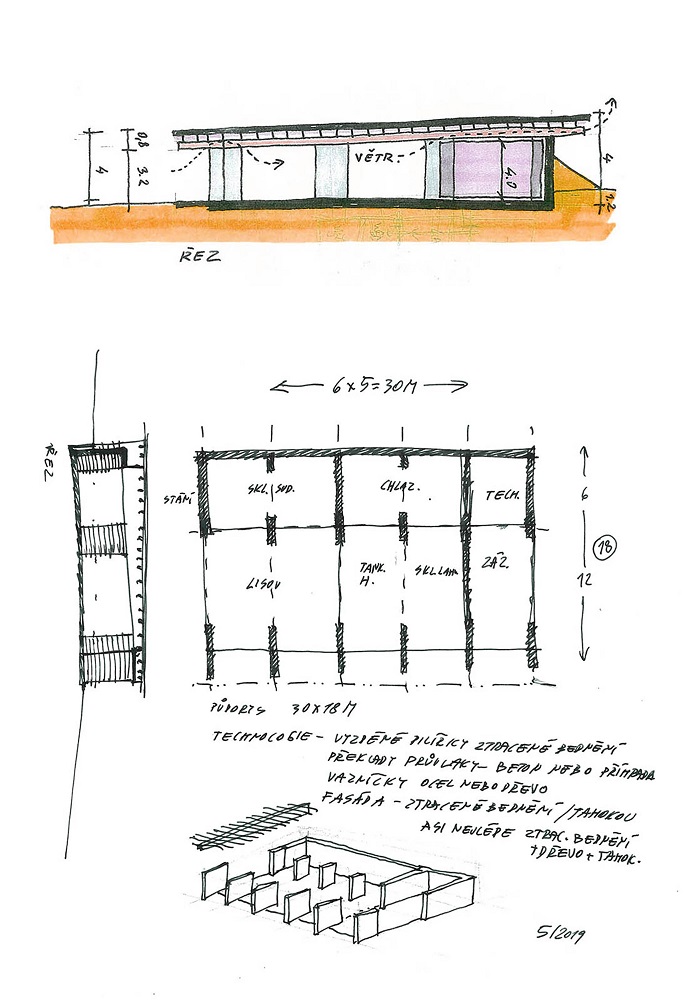 0,8
4
3.2
VĚTR.
4.0
4
1.2
ŘEZ
6x5=30M
ŘEZ
STÁNÍ
SKL. SUD.
CHLAZ.
TECH.
6
18
12
LISOV
TANK. H.
SKL. LAHV
ZÁZ.
PŮDORYS 30X18M
TECHNOLOGIE - VYZDĚNÉ PILÍŘKY ZTRACENÉ BEDNĚNÍ
PŘEKLADY PRŮVLAKY - BETON NEBO PŘÍHRADA
VAZNÍČKY OCEL NEBO DŘEVO
FASÁDA - ZTRACENÉ BEDNĚNÍ / TAHOKOV
ASI NEJLÉPE ZTRAC. BEDNĚNÍ
+ DŘEVO + TAHOK.
5/2019